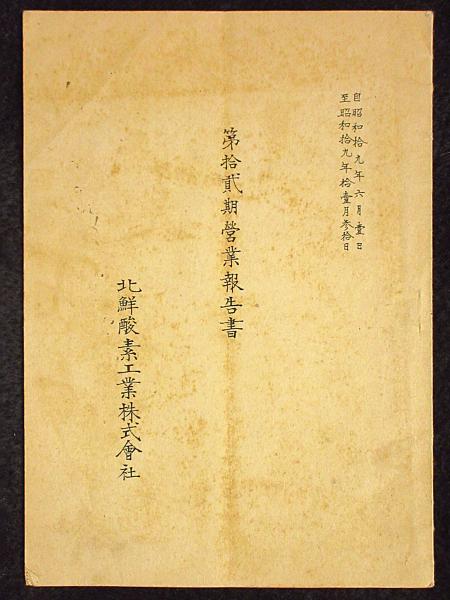 自昭和拾九年六月壹日
至昭和拾九年拾壹月參拾日
第拾貳期營業報告書
北鮮酸素工業株式會社